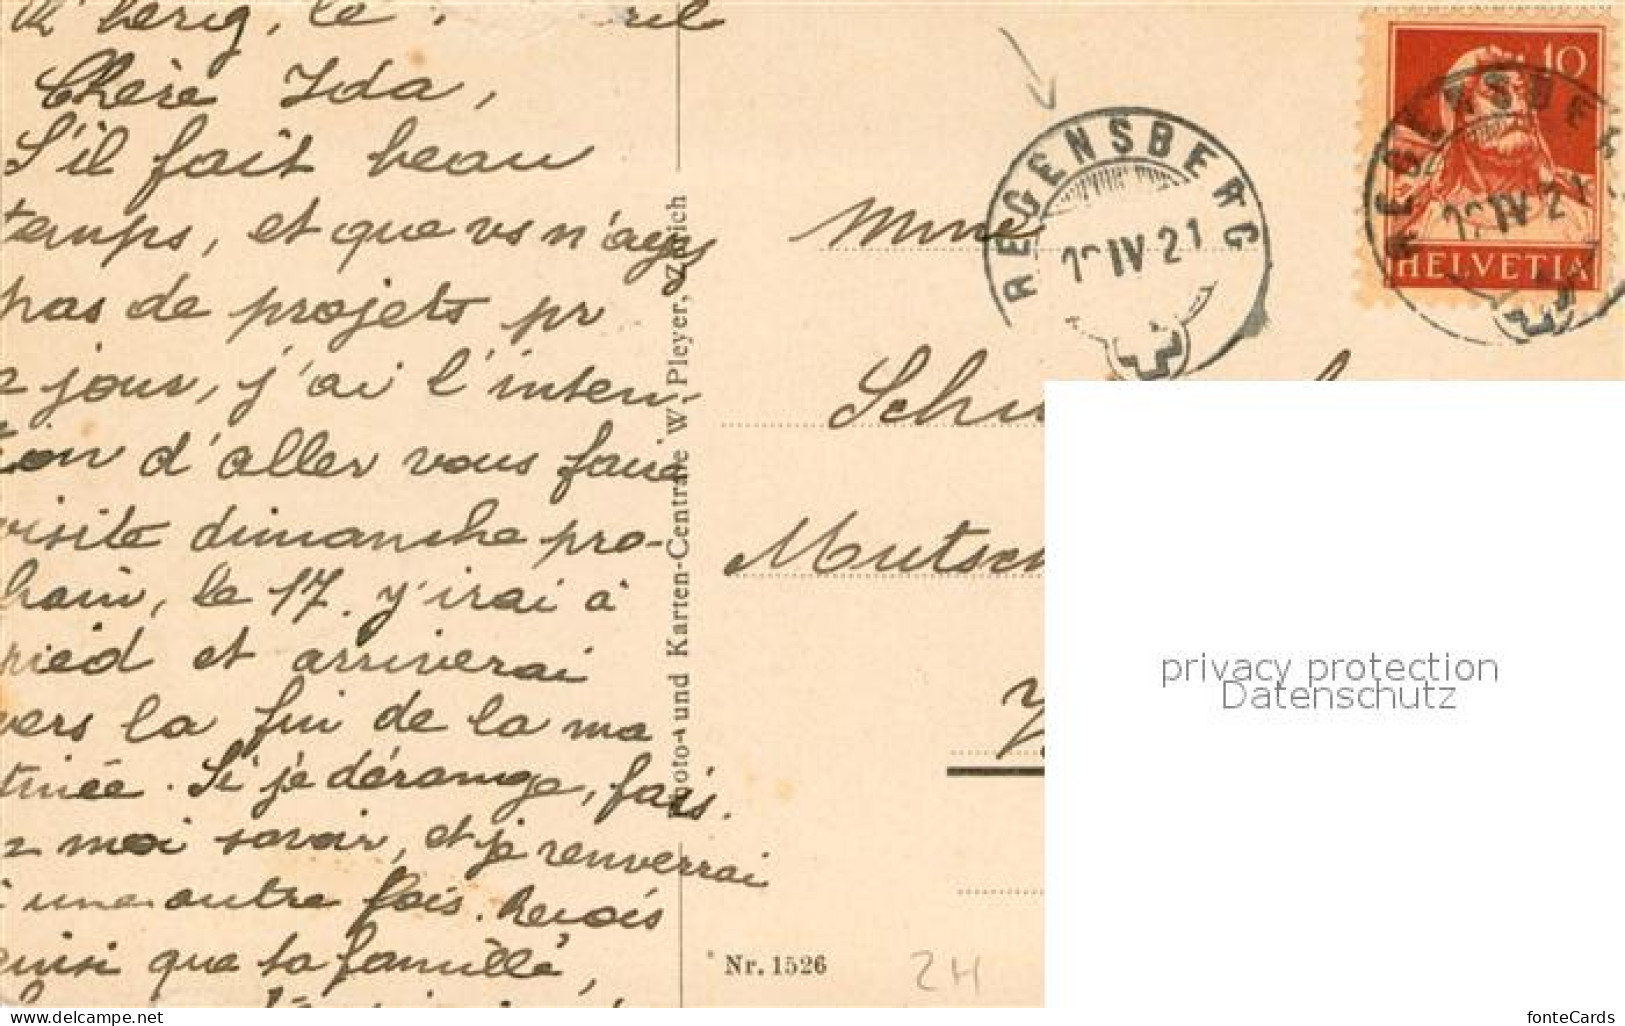 Chère Ida,
S'il fait beau
temps, et que vs n'ayez
pas de projets pr
jour, j'ai l'inten-
tion d'aller vous faire
visite dimanche pro-
chain, le 17. J'irai à
ried et arriverai
vers la fin de la ma
tinée. Si je dérange, fais.
moi savoir, et je renverrai
à une autre fois. Reçois
ainsi que ta famille,
Photo- und Karten-Centrale W. Pleyer, Zürich
Nr. 1526
2H
REGENSBERG
IV 21
Mme
Schu
Mutsch
10
HELVETIA
REGENSBER
IV 21
privacy protection
Datenschutz
delcampe.net
fonteCards